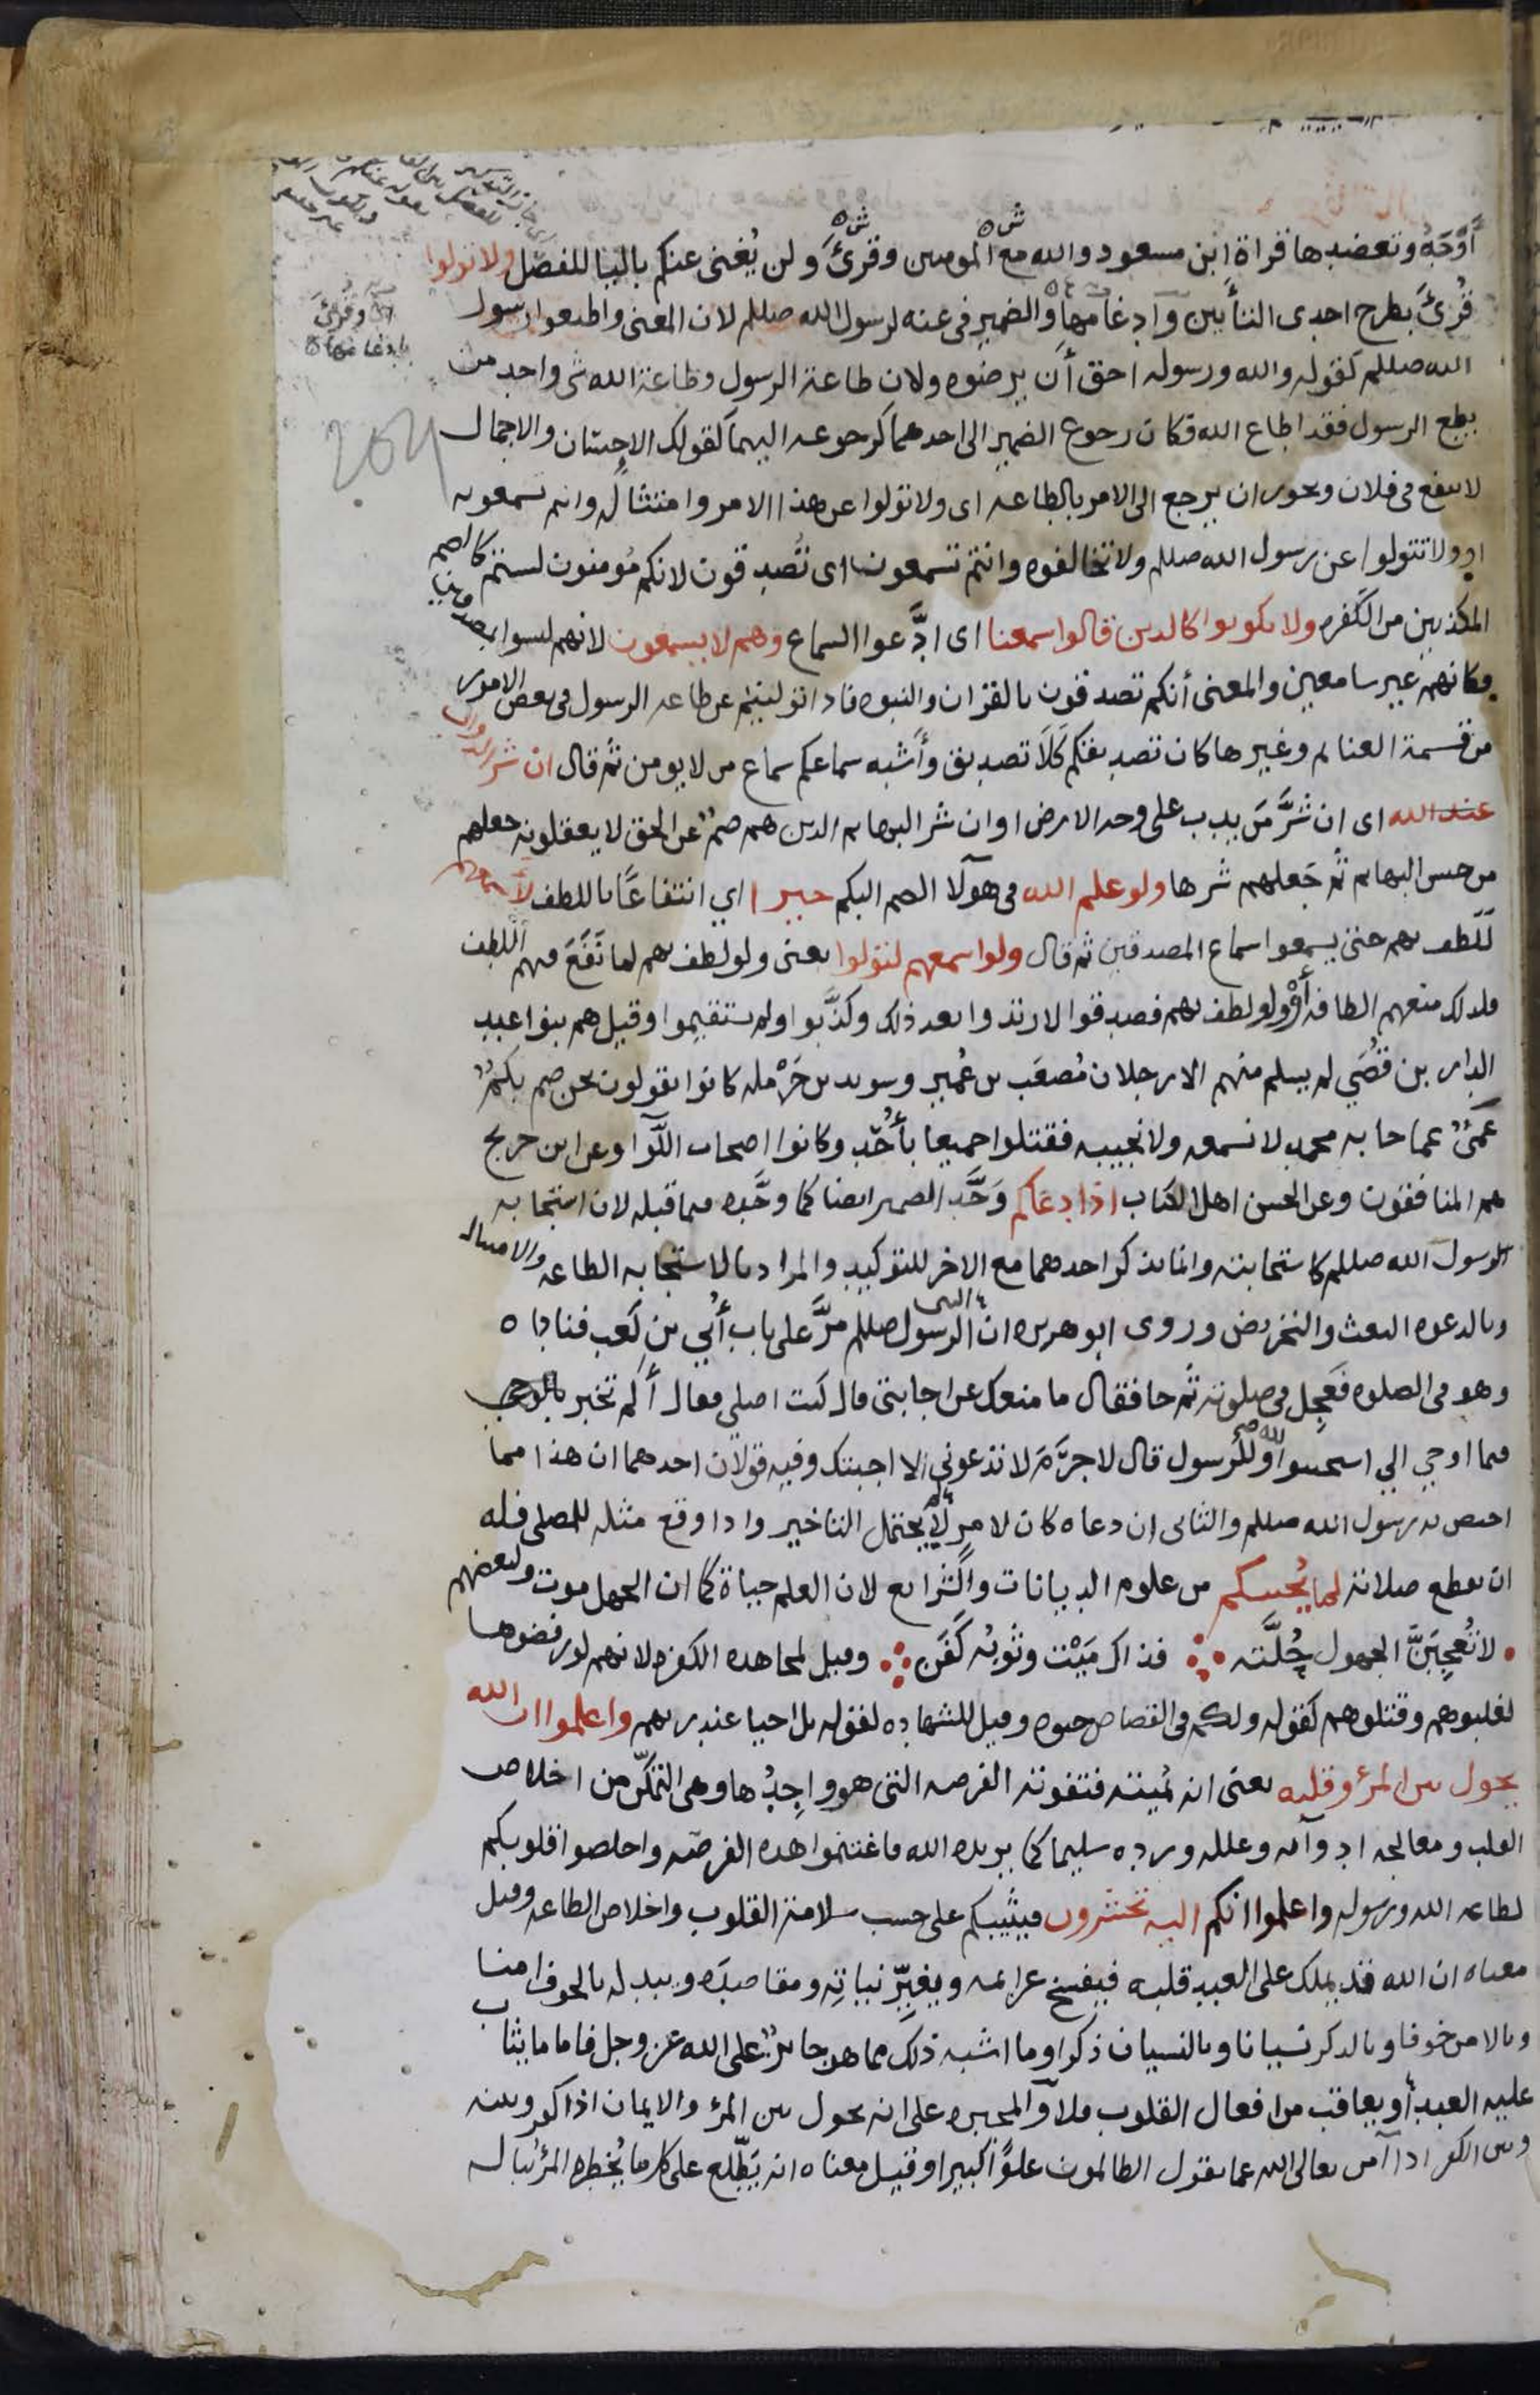 أَوْجَهُ وتعضدها قراة ابن مسعود والله مع المومنين وقرئ ولن يُغنى عنكم باليا للفصل ولا تولوا
قُرئ بطرح احدى التأيين وادغامها والضمير فى عنه لرسول الله صللم لان المعنى واطيعوا رسول
الله صللم كقوله والله ورسوله احق أن يرضوه ولان طاعة الرسول وطاعة الله شى واحد من
يطع الرسول فقد اطاع الله فكان رجوع الضمير الى احدهما كرجوعه اليهما كقولك الاحسان والاجمال
لا ينفع فى فلان ويجوز ان يرجع الى الامر بالطاعه اى ولا تولوا عن هذا الامر وامتثاله وانتم تسمعونه
او ولا تتولوا عن رسول الله صللم ولا تخالفوه وانتم تسمعون اى تُصدقون لانكم مُومنون لستم كالصم
المكذبين من الكفره ولا تكونوا كالدين قالوا سمعنا اى ادَّعوا السماع وهم لا يسمعون لانهم ليسوا بمصدقين
فكانهم غير سامعين والمعنى أنكم تصدقون بالقران والنبوه فاذا توليتم عن طاعه الرسول فى بعض الامور
من قسمة الغنايم وغيرها كان تصديقكم كَلَا تصديق وأشبه سماعكم سماع من لا يومن ثم قال ان شر الدواب
عند الله اى ان شَرَّ مَن يدب على وجه الارض او ان شر البهايم الدين هم صمٌّ عن الحق لا يعقلونه جعلهم
من جنس البهايم ثم جَعلهم شرها ولو علم الله فى هولا الصم البكم خيرا اي انتفاعًا باللطف لأسمعهم
لَلَطف بهم حتى يسمعوا سماع المصدقين ثم قال ولو اسمعهم لتولوا يعنى ولو لطف بهم لما نَفَعَ فيهم اللطف
فلذلك منعهم الطافه أوْ ولو لطف بهم فصدقوا لارتدوا بعد ذلك وكذَّبوا ولم يستقيموا وقيل هم بنوا عبد
الدار بن قُصَي لم يسلم منهم الا رجلان مُصعَب بن عُمير وسويد بن حَرْمله كانوا يقولون نحن صم بكمٌ
عمىٌ عما جا به محمد لا نسمعه ولا نجيبه فقتلوا جميعا بأُحُد وكانوا اصحاب اللوا وعن ابن جريج
هم المنافقون وعن الحسن اهل الكتاب اذا دعاكم وَحَّد الضمير ايضا كما وحَّده فيما قبله لان استجابه
الرسول الله صللم كاستجابته وانما يذكر احدهما مع الاخر للتوكيد والمراد بالاستجابه الطاعه والامتثال
وبالدعوه البعث والتحريض وروى ابو هريره ان الرسول صللم مرَّ على باب أُبي بن كعب فناداه
وهو فى الصلوه فعَجِل فى صلوته ثم جا فقال ما منعك عن اجابتى قال كنت اصلي فقال ألم تخبر بالوحي
فيما اوحي الي استجيبوا لله وللرسول قال لا جرَمَ لا تدعوني الا اجبتك وفيه قولان احدهما ان هذا مما
اختص به رسول الله صللم والثانى ان دعاه كان لامر لم يحتمل التاخير واذا وقع مثله للمصلى فله
ان يقطع صلاته لما يُحييكم من علوم الديانات والشرايع لان العلم حياة كما ان الجهل موت ولبعضهم
لا تُعجِبَنَّ الجهول حُلَّته ∴ فذاك مَيْت وثَوبُه كَفَن ∴ وقيل لمجاهده الكفره لانهم لو رفضوها
لغلبوهم وقتلوهم كقوله ولكم فى القصاص حيوه وقيل للشهاده لقوله بل احيا عند ربهم واعلموا ان الله
يحول بين المرؤ وقلبه يعنى انه يُميته فتفوته الفرصه التى هو واجِدُها وهى التمكّن من اخلاص
القلب ومعالجه ادوآيه وعلله ورده سليما كما يريده الله فاغتنموا هذه الفرصه واخلصوا قلوبكم
لطاعه الله ورسوله واعلموا انكم اليه تحشرون فيثيبكم على حسب سلامة القلوب واخلاص الطاعه وقيل
معناه ان الله قد يملك على العبد قلبه فيفسخ عزايمه ويغيِّر نياتِه ومقاصدَه ويبدله بالخوف امنا
وبالامن خوفا وبالذكر نسيانا وبالنسيان ذكرا وما اشبه ذلك مما هو جايزٌ على الله عز وجل فاما ما يثاب
عليه العبد أو يعاقب من افعال القلوب فلا والمجبره على انه يحول بين المرؤ والايمان اذا كفر وبينه
وبين الكفر اذا آمن تعالى الله عما يقول الظالمون علوًّا كبيرا وقيل معناه انه يَطَّلِع على كل ما يُخطِره المرؤ بباله
وقرئ
بادغامها
204